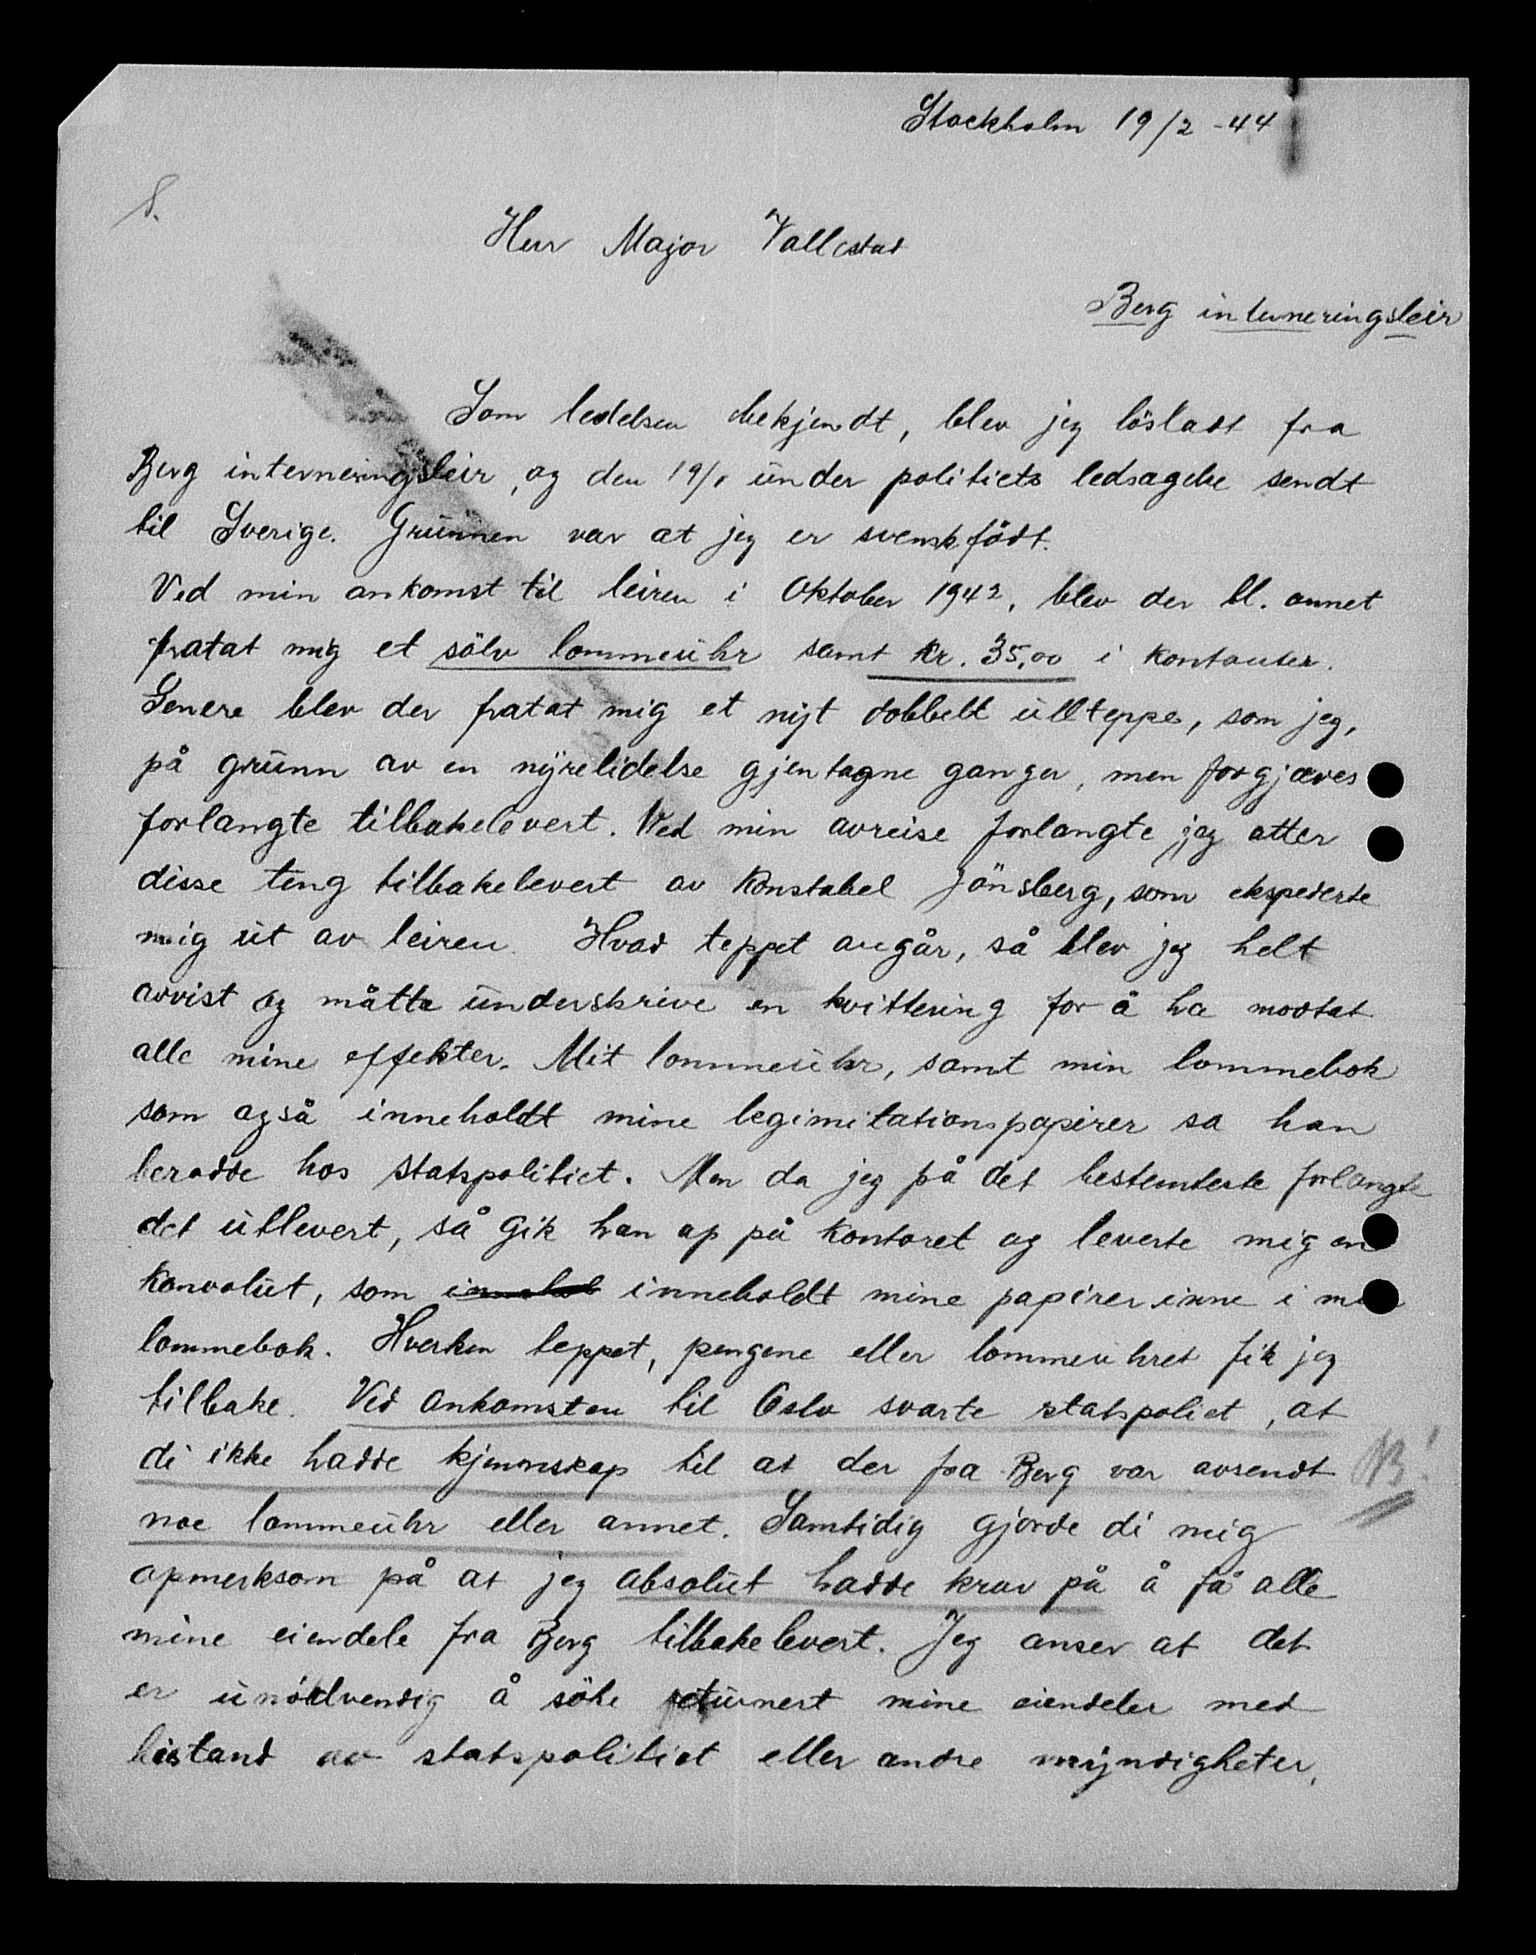 Stockholm 19/2 -44
Herr Major Wallestad
Berg interneringsleir
Som ledelsen bekjendt, blev jeg löslatt fra
Berg interneringsleir, og den 19/1 under politiets ledsagelse sendt
til Sverige. Grunnen var at jeg er svenskfödt.
Ved min ankomst til leiren i Oktober 1942, blev der bl. annet
fratat mig et sölv lommeuhr samt kr. 35,00 i kontanter.
Senere blev der fratat mig et nyt dobbelt ullteppe, som jeg,
på grunn av en nyrelidelse gjentagne ganger, men forgjæves
forlangte tilbakelevert. Ved min avreise forlangte jeg atter
disse ting tilbakelevert av Konstabel Jönsberg, som ekspederte
mig ut av leiren. Hvad teppet angår, så blev jeg helt
avvist og måtte underskrive en kvittering for å ha mottat
alle mine effekter. Mit lommeuhr, samt min lommebok
som også inneholdt mine legimitationspapirer sa han
berodde hos statspolitiet. Men da jeg på det bestemteste forlangte
det utlevert, så gik han op på kontoret og leverte mig en
konvolut, som inneholdt mine papirer inne i min
lommebok. Hverken teppet, pengene eller lommeuhret fik jeg
tilbake. Ved ankomsten til Oslo svarte statspoliet, at
di ikke hadde kjennskap til at der fra Berg var avsendt
NB!
noe lommeuhr eller annet. Samtidig gjorde di mig
opmerksom på at jeg absolut hadde krav på å få alle
mine eiendele fra Berg tilbakelevert. Jeg anser at det
er unödvendig å söke returnert mine eiendeler med
bistand av statspolitiet eller andre myndigheter,